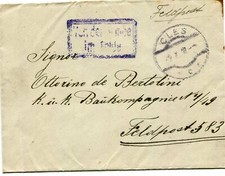 Feldpost
CLES
im Felde
Signor
Ottorino de Bertolini
K.u.K. Baukompagnie 4/19
Feldpost 583